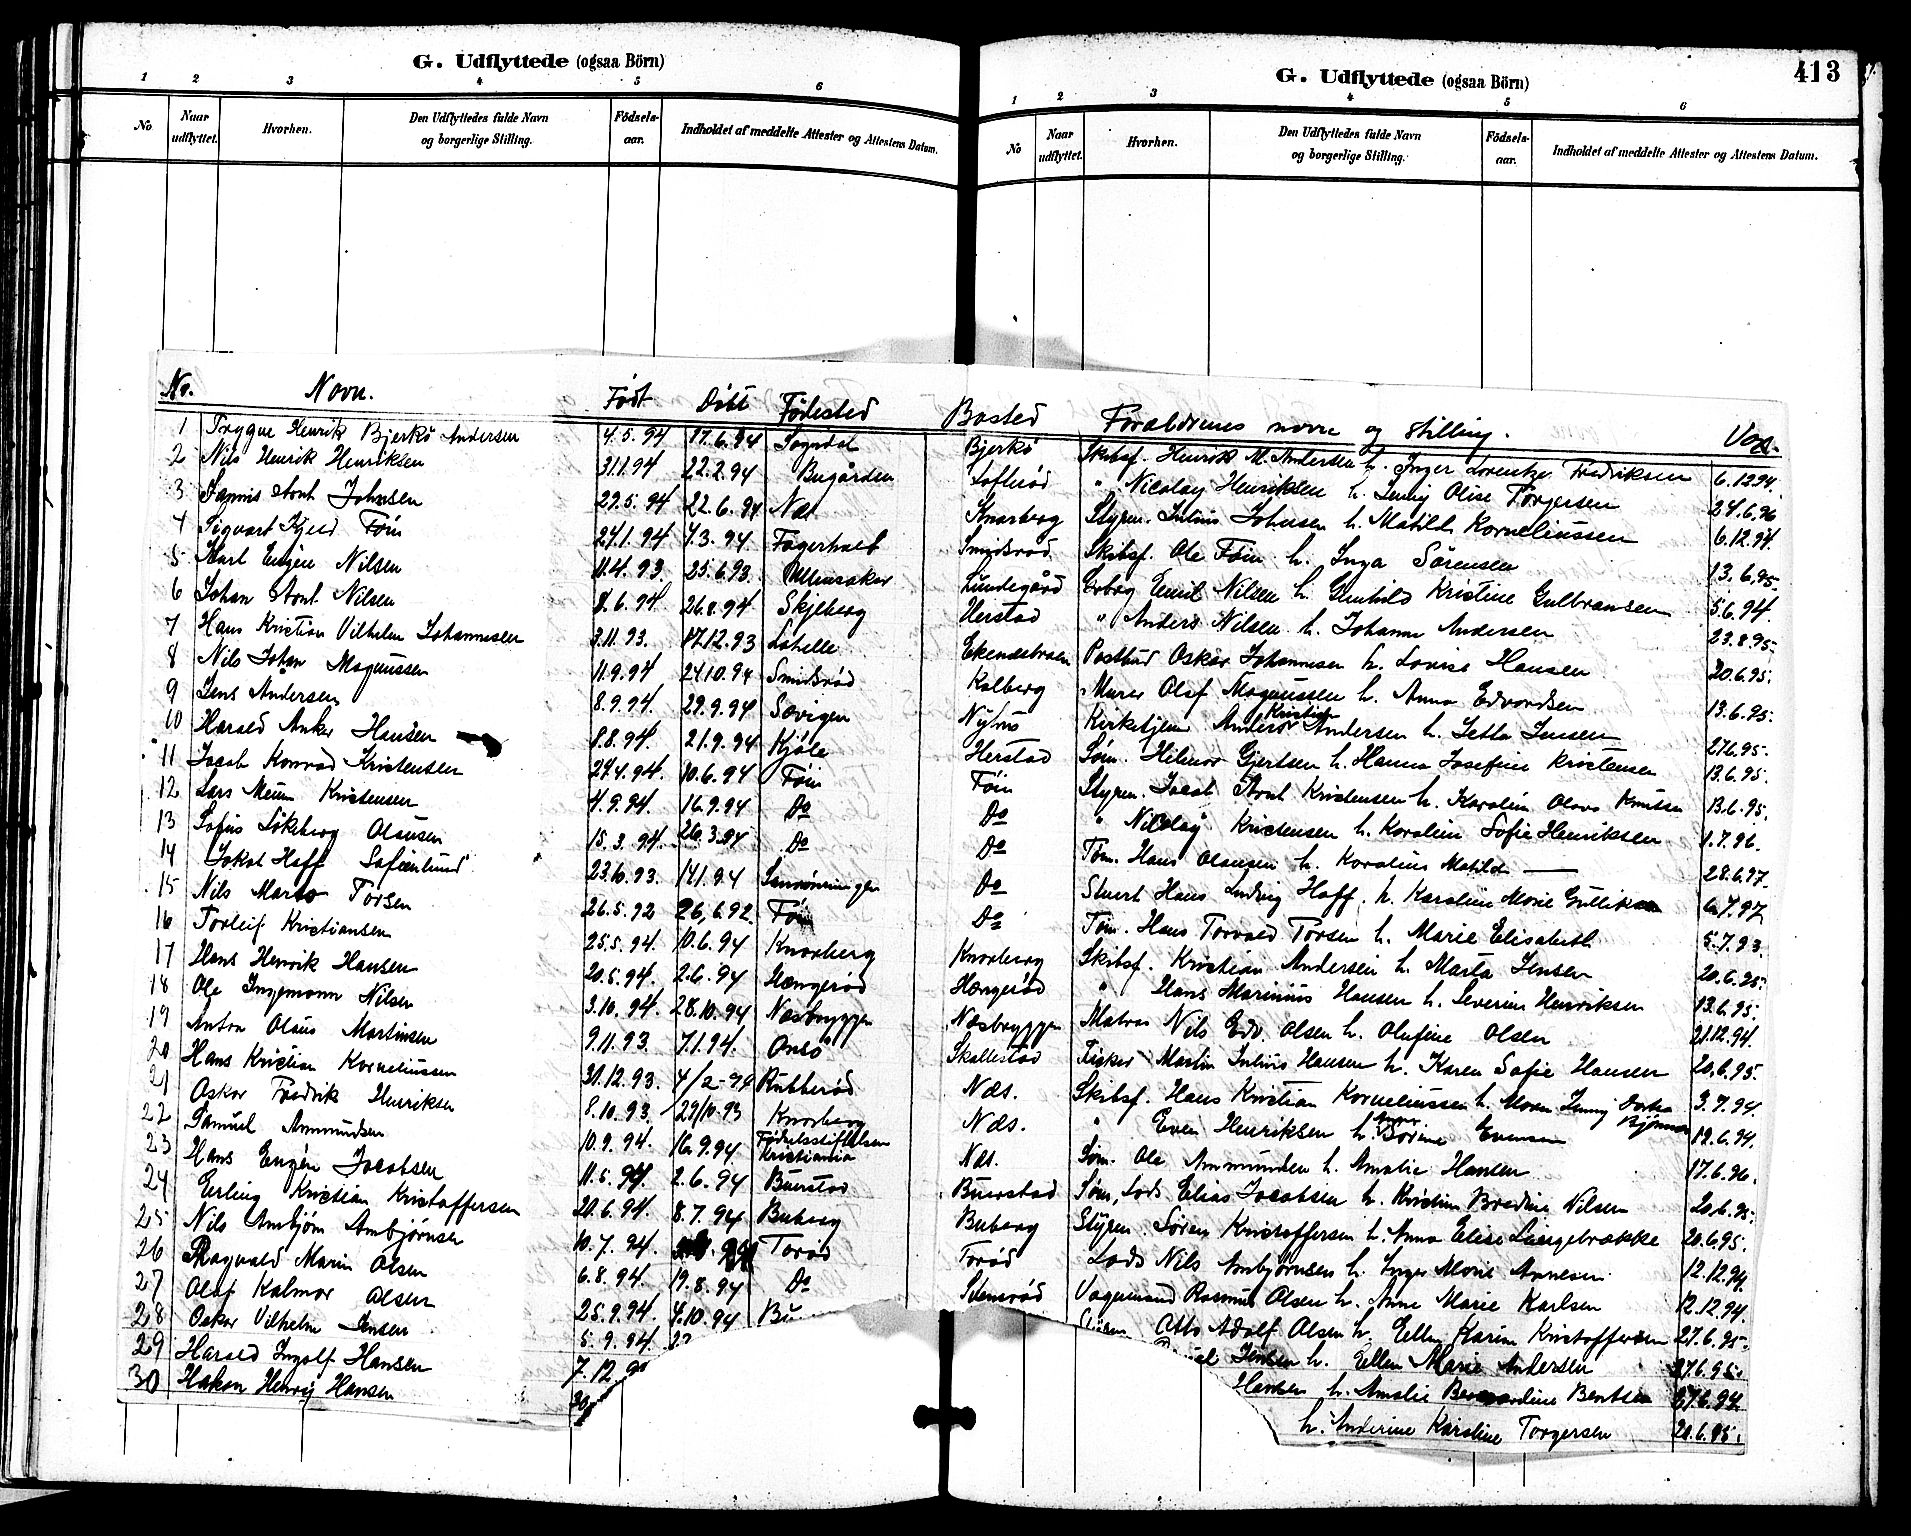 G. Udflyttede (ogsaa Börn)
1 2 3 4 5 6
No. Naar udflyttet. Hvorhen. Den Udflyttedes fulde Navn og borgerlige Stilling. Födsels-aar. Indholdet af meddelte Attester og Attestens Datum.
G. Udflyttede (ogsaa Börn) 413
1 2 3 4 5 6
No Naar udflyttet. Hvorhen. Den Udflyttedes fulde Navn og borgerlige Stilling. Födsels-aar. Indholdet af meddelte Attester og Attestens Datum.
No. Navn. Født Døbt Fødested Bosted Forældrenes navne og stilling. Vac.
1 Trygve Henrik Bjerkø Andersen 4.5.94 17.6.94 Sogndal Bjerkø Skibsf. Henrik M. Andersen h. Inger Lorentze Fredriksen 6.12.94.
2 Nils Henrik Henriksen 31.1.94 22.2.94 Bugården Lofterød " Nicolay Henriksen h. Jenny Olise Torgersen 24.6.96
3 Arnt Johnsen 29.5.94 22.6.94 Næs Knarberg Styrm. Julius Johnsen h. Matilde Korneliussen 6.12.94.
4 Sigvart Kjeld Føin 24.1.94 4.3.94. Fagerholt Smidsrød Skibsf. Ole Føin h. Inga Sørensen 13.6.95.
5 Karl Eugen Nilsen 11.4.93. 25.6.93. Ullensaker Lundegård Emil Nilsen h. Gunhild Kristine Gulbransen 5.6.94.
6 Johan Arnt Nilsen 8.6.94. 26.8.94 Skjeberg Herstad " Anders Nilsen h. Johanne Andersen 23.8.95.
7 Hans Kristian Vilhelm Johannesen 3.11.93. 17.12.93 Labelle Ekenesbraaten Postbud Oskar Johannesen h. Lovise Hansen 20.6.95.
8 Nils Johan Magnussen 11.9.94 24.10.94 Smidsrød Kolberg Murer Olaf Magnussen h. Anna Edvardsen 13.6.95.
9 Jens Andersen 8.9.94. 29.9.94 Sevigen Nyhus Kirketjener Anders Kristian Andersen h. Jetta Jensen 27.6.95.
10 Harald Anker Hansen 8.8.94. 21.9.94 Kjøle Herstad Søm. Helmer Gjertsen h. Hanna Josefine Kristensen 13.6.95.
11 Jacob Konrad Kristensen 24.4.94. 10.6.94 Føin Føin Styrm. Jacob Arnt Kristensen h. Karoline Olava Knutsen 13.6.95.
12 Lars Kristensen 4.9.94. 16.9.94 Do Do " Nicolay Kristensen h. Karoline Sofie Henriksen 1.7.96.
13 Sofus Løkeberg Olausen 15.3.94. 26.3.94 Do Do Tøm. Hans Olausen h. Karoline Matilde — 28.6.97.
14 Jokal Haff 23.10.93. 14.1.94 Sanrønningen Do Stuert Hans Ludvig Haff h. Karoline Marie Gulliksen 6.7.97
15 Nils Torsen 26.5.92 26.6.92 Føin Do Tøm. Hans Torvald Torsen h. Marie Elisabeth 5.7.93.
16 Torleif Kristiansen 25.5.94. 10.6.94 Knarberg Knarberg Skibsf. Kristian Andersen h. Marta Jensen 20.6.95.
17 Hans Henrik Hansen 20.5.94. 2.6.94 Hængerød Hængerød " Hans Marinius Hansen h. Severine Henriksen 13.6.95.
18 Ole Ingemann Nilsen 3.10.94. 28.10.94 Næsbryggen Næsbryggen Matros Nils Edv. Olsen h. Olufine Olsen 21.12.94.
19 Anton Olaus Martinsen 9.11.93. 7.1.94. Onsø Skallestad Fisker Martin Julius Hansen h. Karen Sofie Hansen 20.6.95.
20 Hans Kristian Korneliussen 31.12.93. 4/2-94 Rubberød Næs. Skibsf. Hans Kristian Korneliussen h. Maren Jenny Bjønnes 3.7.94.
21 Oskar Fredrik Henriksen 8.10.93. 29/10.93 Knarberg Næs. " Even Henriksen h. Anne Sørine Evensen 19.6.94.
22 Samuel Ammundsen 10.9.94. 16.9.94 Fødselsstiftelsen Kristiania Næs. Søm. Ole Ammundsen h. Amalie Hansen 17.6.96.
23 Hans Eugen Jacobsen 11.5.94. 2.6.94 Buerstad Buerstad Søm, Lods Elias Jacobsen h. Kristine Bredine Nilsen 20.6.95.
24 Erling Kristian Kristoffersen 20.6.94. 8.7.94 Buberg Buberg Styrm. Søren Kristoffersen h. Anna Elise Langebrække 20.6.95.
25 Nils Ambjørn Ambjørnsen 10.7.94. Torød Torød Lods Nils Ambjørnsen h. Inger Marie Arnesen 12.12.94.
26 Ragvald Marin Olsen 6.8.94. 19.8.94 Do Stensrød Vognmand Rasmus Olsen h. Anne Marie Karlsen 12.12.94.
27 Olaf Kalmar Olsen 25.9.94. 4.10.94 Bu Otto Adolf Olsen h. Ellen Karine Kristoffersen 27.6.95.
28 Oskar Vilhelm Jensen 5.9.94. Jensen h. Ellen Marie Andersen 27.6.95.
29 Harald Ingolf Hansen 7.12.9 Hansen h. Amalie Bernardine Bentsen 27.6.94
30 Hakon Henry Hansen 30 h. Anderine Karoline Torgersen 20.6.95.